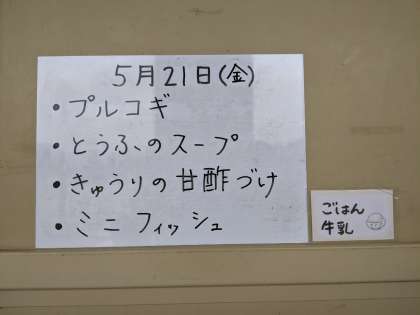 5月21日(金)
• プルコギ
• とうふのスープ
• きゅうりの甘酢づけ
• ミニフィッシュ
ごはん
牛乳